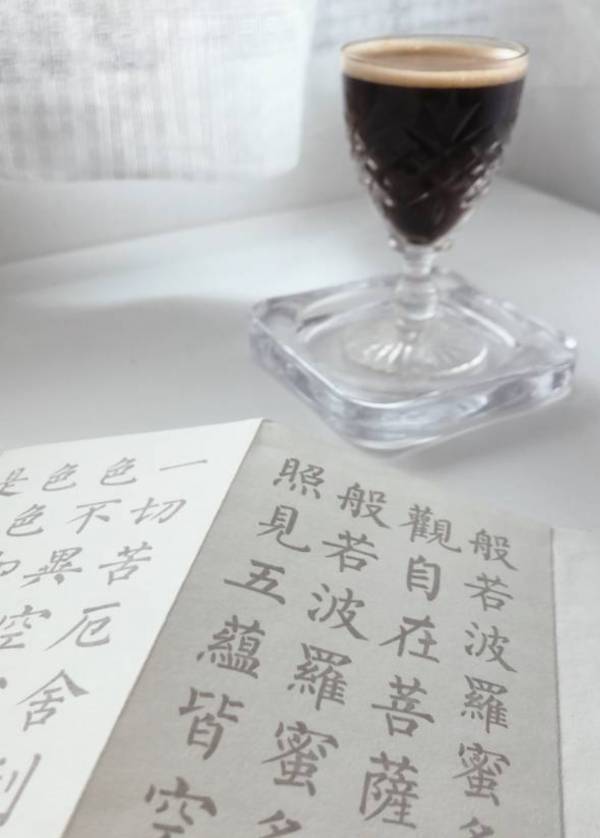 般若波羅蜜多
觀自在菩薩
般若波羅蜜多
照見五蘊皆空
一切苦厄舍利
色不異空
色色
是